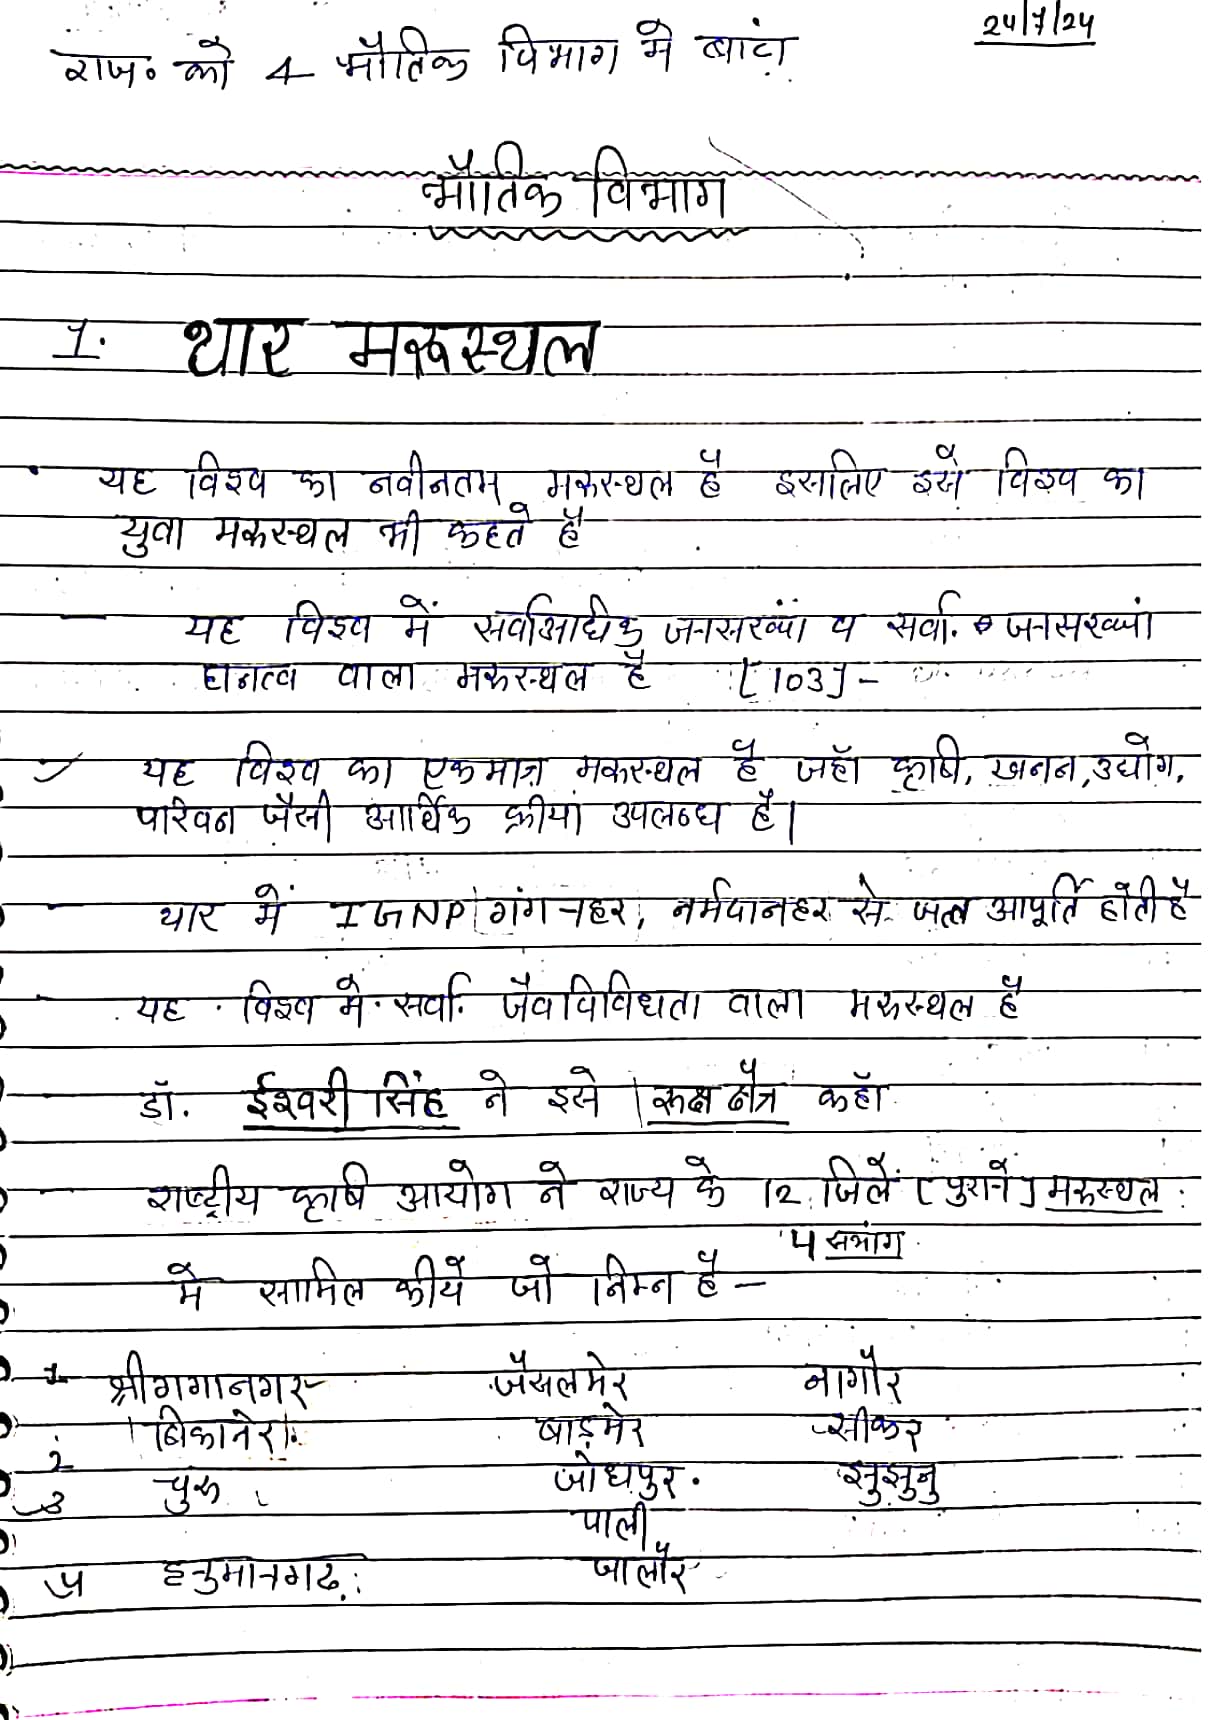 24/7/24
राज. को 4 भौतिक विभाग मे बांटा
भौतिक विभाग
1. थार मरूस्थल
यह विश्व का नवीनतम मरूस्थल है इसलिए इसे विश्व का
युवा मरूस्थल भी कहते है
— यह विश्व में सर्वाआधिक जनसख्यां व सर्वा. जनसख्यां
घनत्व वाला मरूस्थल है [103] -
यह विश्व का एकमात्र मरूस्थल है जहाँ कृषि, खनन, उद्योग,
परिवन जैसी आर्थिक क्रीयां उपलब्ध है।
- थार में IGNP | गंगनहर, नर्मदानहर से जल आपूर्ति होती है
- यह विश्व मे सर्वा. जैवविविधता वाला मरूस्थल है
डॉ. ईश्वरी सिंह ने इसे रूक्ष क्षैत्र कहाँ
राष्ट्रीय कृषि आयोग ने राज्य के 12 जिलें [पुराने] मरूस्थल
4 सभांग
मे सामिल कीये जो निम्न है —
1 श्रीगगानगर जैसलमेर नागौर
2 बिकानेर बाड़मेर सीकर
3 चुरू जोधपुर. झुझुनु
पाली
4 हनुमानगढ़ जालौर